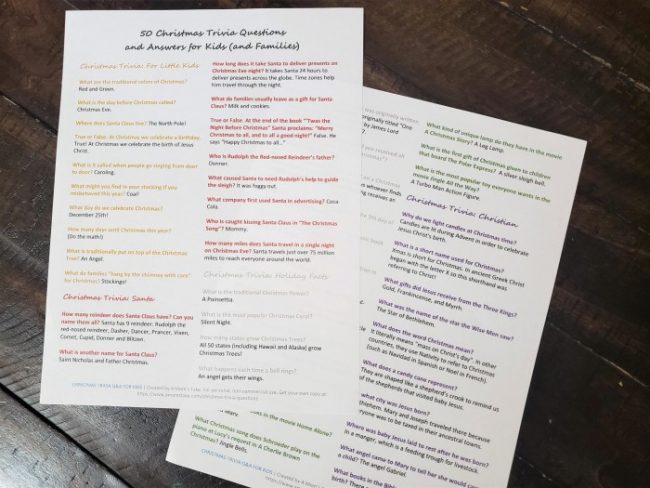 50 Christmas Trivia Questions
and Answers for Kids (and Families)
Christmas Trivia: For Little Kids
What are the traditional colors of Christmas?
Red and Green.
What is the day before Christmas called?
Christmas Eve.
Where does Santa Claus live? The North Pole!
True or False. At Christmas we celebrate a birthday.
True! At Christmas we celebrate the birth of Jesus
Christ.
What is it called when people go singing from door
to door? Caroling.
What might you find in your stocking if you
misbehaved this year? Coal!
What day do we celebrate Christmas?
December 25th!
How many days until Christmas this year?
(Do the math!)
What is traditionally put on top of the Christmas
Tree? An Angel.
What do families "hang by the chimney with care"
for Christmas? Stockings!
Christmas Trivia: Santa
How many reindeer does Santa Claus have? Can you
name them all? Santa has 9 reindeer. Rudolph the
red-nosed reindeer, Dasher, Dancer, Prancer, Vixen,
Comet, Cupid, Donner and Blitzen.
What is another name for Santa Claus?
Saint Nicholas and Father Christmas.
How long does it take Santa to deliver presents on
Christmas Eve night? It takes Santa 24 hours to
deliver presents across the globe. Time zones help
him travel through the night.
What do families usually leave as a gift for Santa
Claus? Milk and cookies.
True or False: At the end of the book "'Twas the
Night Before Christmas" Santa proclaims: "Merry
Christmas to all, and to all a good-night!" False. He
says "Happy Christmas to all..."
Who is Rudolph the Red-nosed Reindeer's father?
Donner.
What caused Santa to need Rudolph's help to guide
the sleigh? It was foggy out.
What company first used Santa in advertising? Coca
Cola.
Who is caught kissing Santa Claus in "The Christmas
Song"? Mommy.
How many miles does Santa travel in a single night
on Christmas Eve? Santa travels just over 75 million
miles to reach everyone around the world.
Christmas Trivia: Holiday Facts
What is the traditional Christmas Flower?
A Poinsettia.
What is the most popular Christmas Carol?
Silent Night.
How many states grow Christmas Trees?
All 50 states (including Hawaii and Alaska) grow
Christmas Trees!
What happens each time a bell rings?
An angel gets their wings.
CHRISTMAS TRIVIA Q&A FOR KIDS
was originally written
originally titled "One
by James Lord
What kind of unique lamp do they have in the movie
A Christmas Story? A Leg Lamp.
What is the first gift of Christmas given to children
that board The Polar Express? A silver sleigh bell.
What is the most popular toy everyone wants in the
movie Jingle All the Way?
A Turbo Man Action Figure.
Christmas Trivia: Christian
Why do we light candles at Christmas time?
Candles are lit during Advent in order to celebrate
Jesus Christ's birth.
What is a short name used for Christmas?
Xmas is short for Christmas. In ancient Greek Christ
began with the letter X so this shorthand was
referring to Christ!
What gifts did Jesus receive from the Three Kings?
Gold, Frankincense, and Myrrh.
What was the name of the star the Wise Men saw?
The Star of Bethlehem.
What does the word Christmas mean?
It literally means "mass on Christ's day" in other
countries, they use Nativity to refer to Christmas
(such as Navidad in Spanish or Noel in French).
What does a candy cane represent?
They are shaped like a shepherd's crook to remind us
of the shepherds that visited baby Jesus.
what city was Jesus born?
ethlehem. Mary and Joseph traveled there because
everyone was to be taxed in their ancestral towns.
Where was baby Jesus laid to rest after he was born?
in a manger, which is a feeding trough for livestock.
What angel came to Mary to tell her she would carry
a child? The angel Gabriel.
What books in the Bible
birth?
in the movie Home Alone?
What Christmas song does Schroeder play on the
piano at Lucy's request in A Charlie Brown
Christmas? Jingle Bells.
CHRISTMAS TRIVIA Q&A FOR KIDS